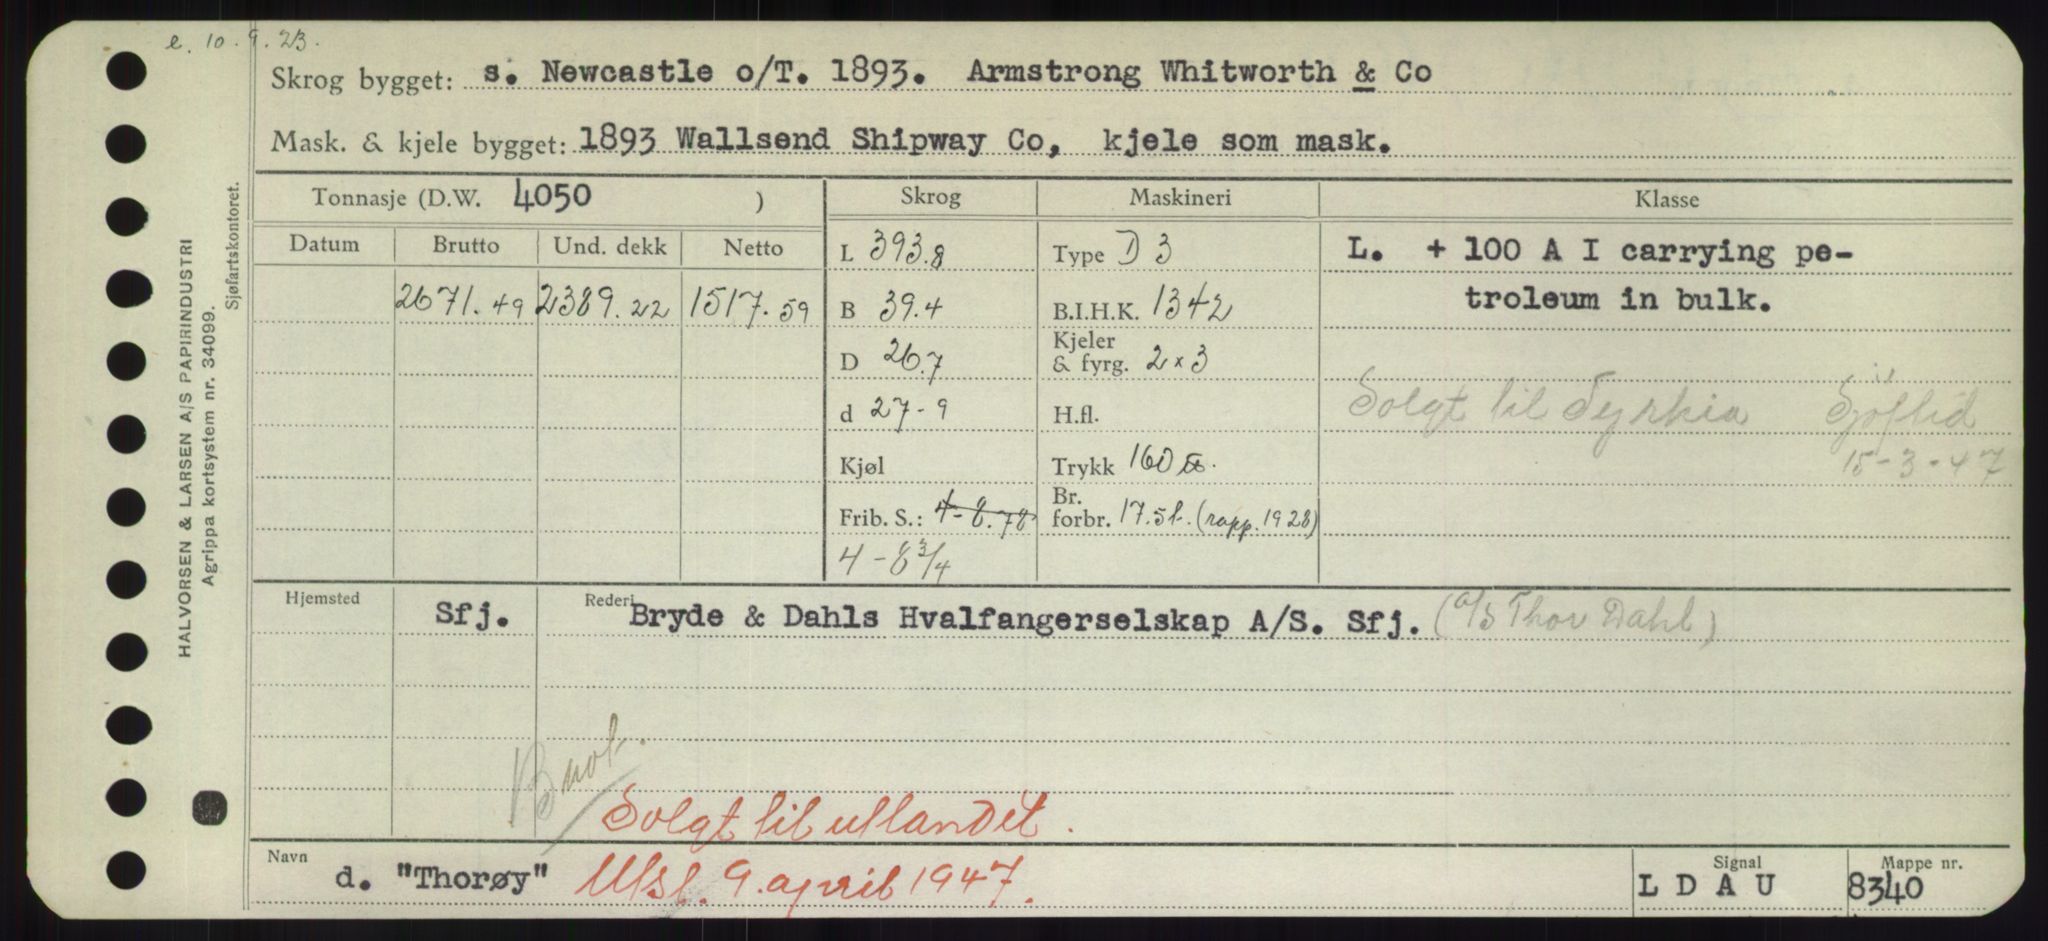 e. 10.9.23.
Skrog bygget: s. Newcastle o/T. 1893. Armstrong Whitworth & Co
Mask. & kjele bygget: 1893 Wallsend Shipway Co, kjele som mask.
Tonnasje (D.W. 4050 ) Skrog Maskineri Klasse
Datum Brutto Und. dekk Netto L 393.8 Type D 3 L. + 100 A I carrying pe-
2671.49 2389.22 1517.59 B 39.4 B.I.H.K. 1342 troleum in bulk.
D 26.7 Kjeler & fyrg. 2 x 3
d 27-9 H.fl. Solgt til Tyrkia Sjöftid
Kjøl Trykk 160 15-3-47
Frib. S.: 4-8.78 Br. forbr. 17.5 t. (rapp. 1928)
4-8 3/4
Hjemsted Sfj. Rederi Bryde & Dahls Hvalfangerselskap A/S. Sfj. (A/S Thor Dahl)
Solgt til utlandet.
Navn d. "Thorøy" Utsl. 9. april 1947. Signal L D A U Mappe nr. 8340
HALVORSEN & LARSEN A/S PAPIRINDUSTRI
Agrippa kortsystem nr. 34099.
Sjøfartskontoret.